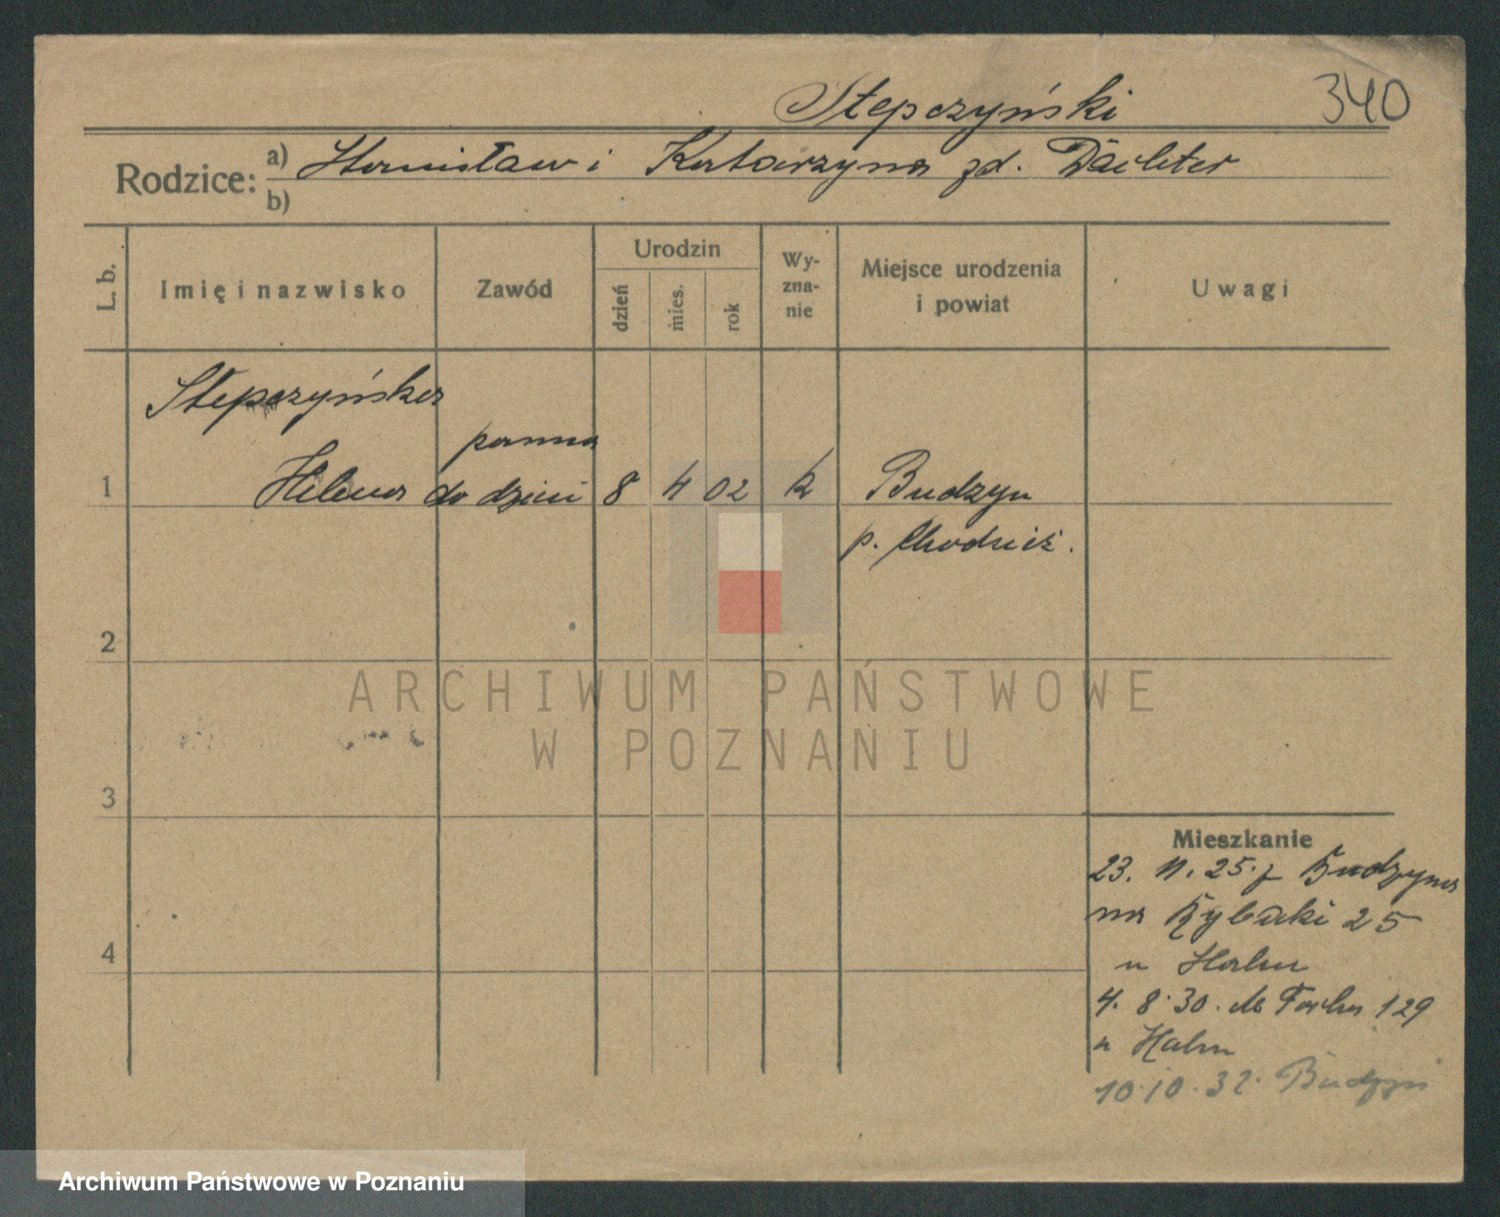 340
Stepczyński
Rodzice: a) Stanisław i Katarzyna zd. Daelter
b)
L. b.
Imię i nazwisko
Zawód
Urodzin
dzień
mies.
rok
Wy-
zna-
nie
Miejsce urodzenia
i powiat
Uwagi
Stepczyńska
panna
1 Helena do dzieci 8 4 02 k Budzyn
p. Chodzież.
2
ARCHIWUM PAŃSTWOWE
W POZNANIU
3
Mieszkanie
23. 11. 25. z Budzyna
na Rybaki 25
u Hahn
4
4. 8. 30. M Focha 129
u Hahn
10.10.32. Budzyń
Archiwum Państwowe w Poznaniu